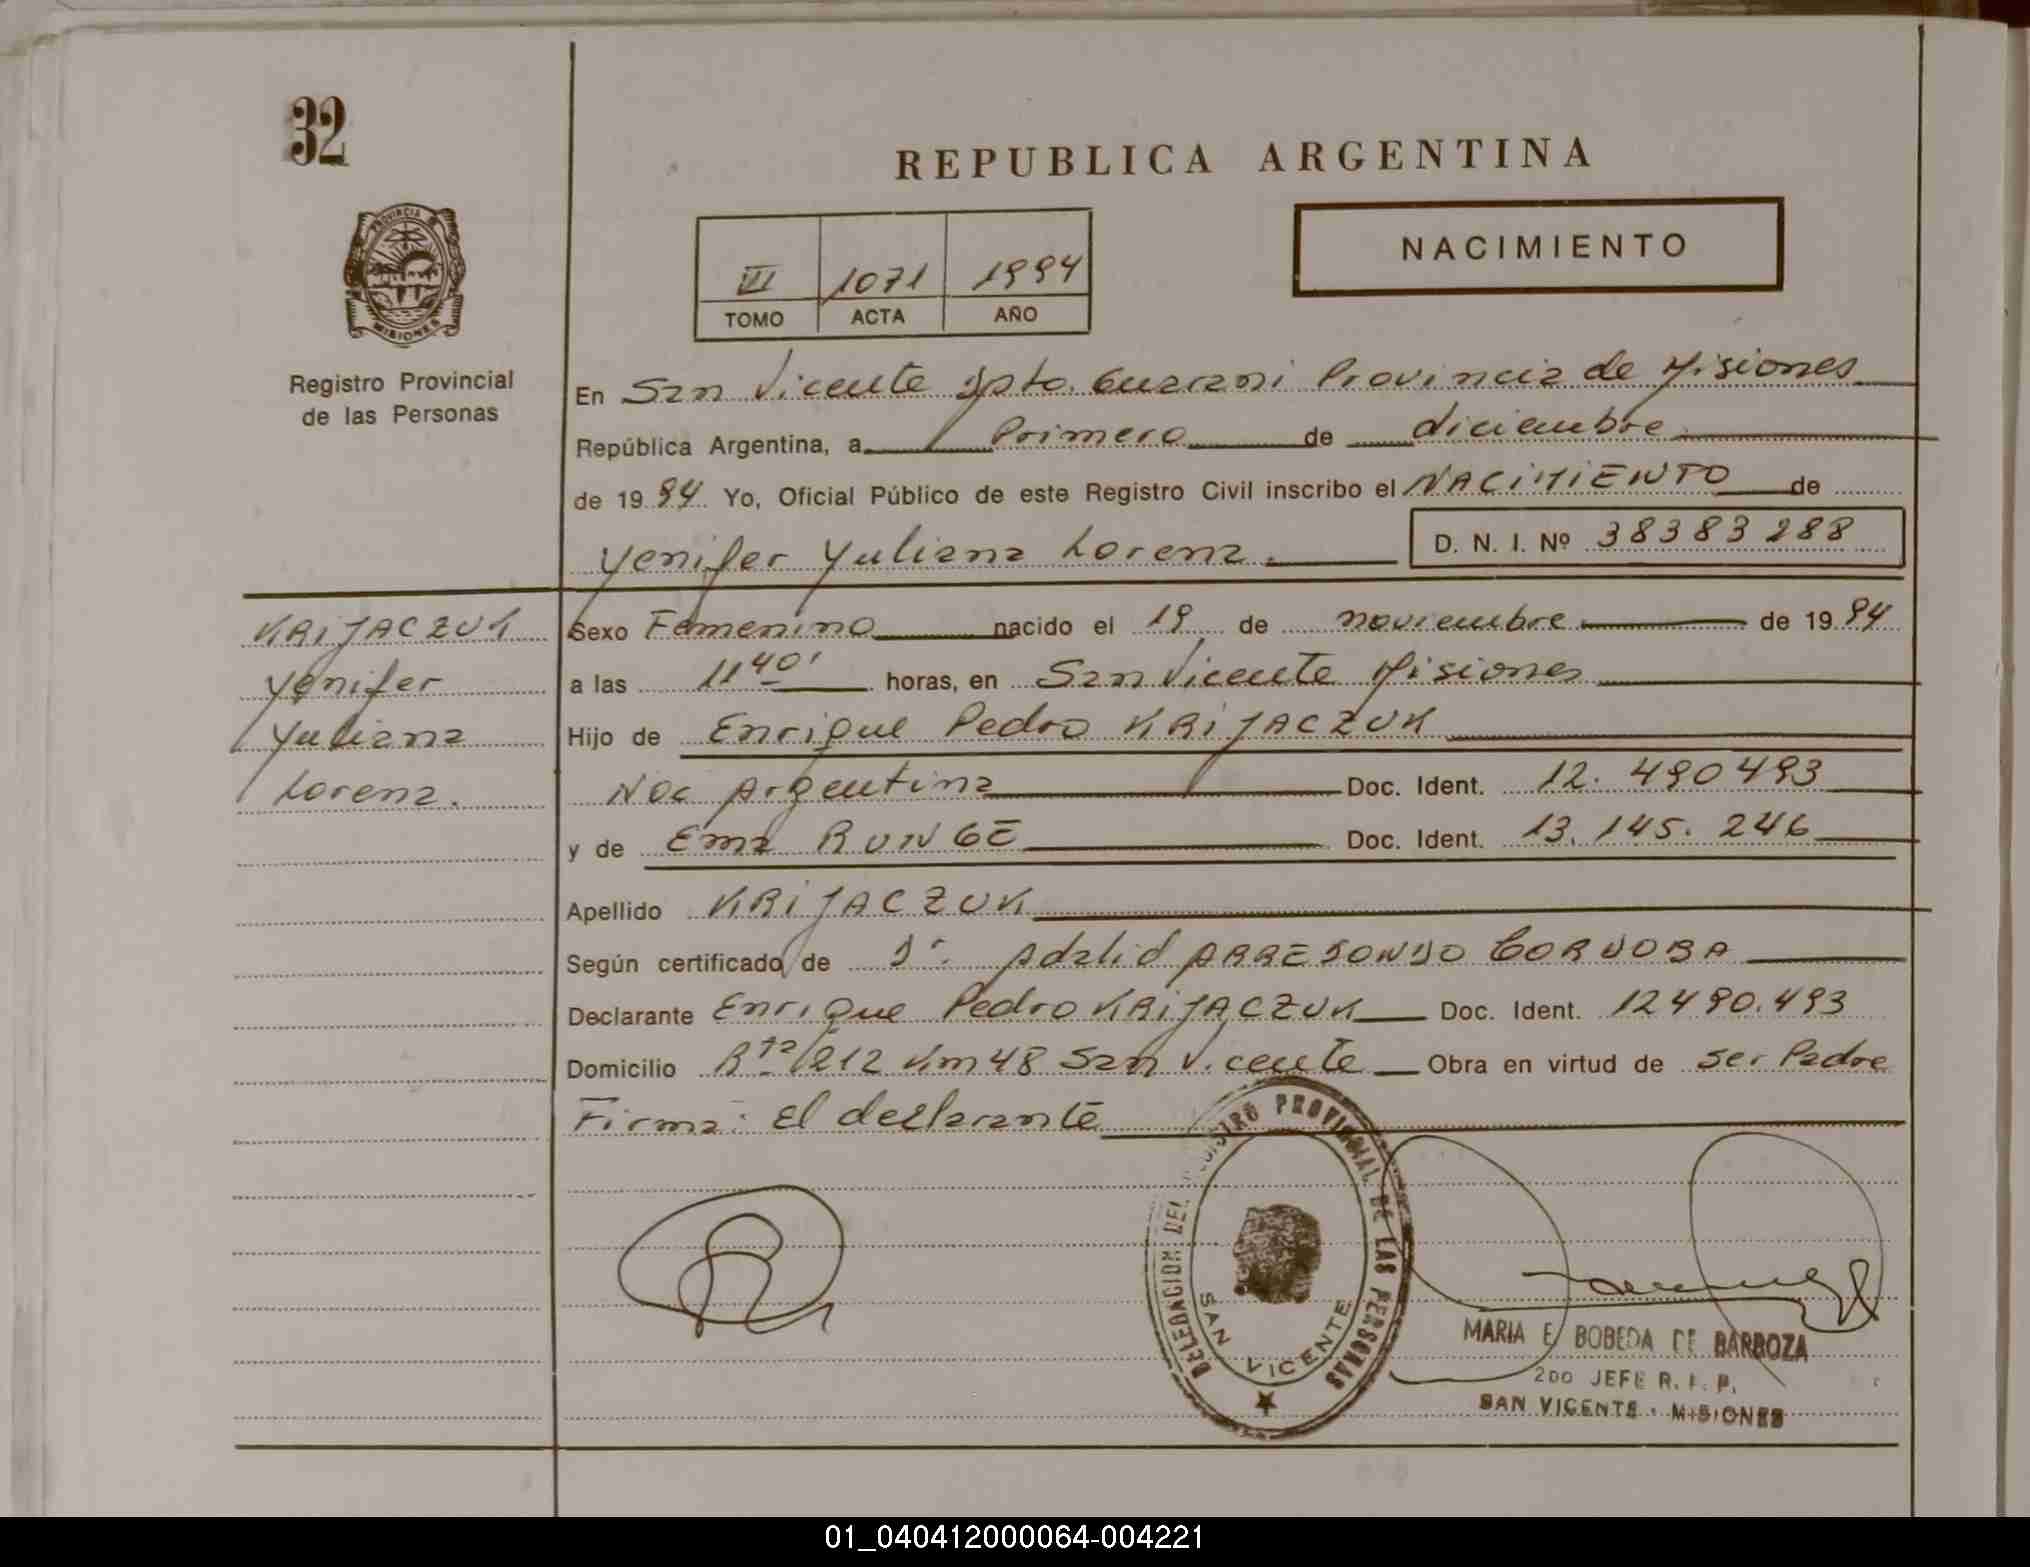 32
REPUBLICA ARGENTINA
PROVINCIA DE
MISIONES
Registro Provincial
de las Personas
III 1071 1994
TOMO ACTA AÑO
NACIMIENTO
En San Vicente Dpto. Guarani Provincia de Misiones
República Argentina, a Primero de diciembre
de 1994 Yo, Oficial Público de este Registro Civil inscribo el NACIMIENTO de
Yenifer Yuliana Lorena. D. N. I. Nº 38383288
KRIJACZUK
Yenifer
Yuliana
Lorena.
Sexo Femenino nacido el 19 de noviembre de 1994
a las 11 40' horas, en San Vicente Misiones
Hijo de Enrique Pedro KRIJACZUK
Nac Argentina Doc. Ident. 12.490493
y de Ema RUNGE Doc. Ident. 13.145.246
Apellido KRIJACZUK
Según certificado de Dr. Adalid ARREDONDO CORDOBA
Declarante Enrique Pedro KRIJACZUK Doc. Ident. 12490.493
Domicilio Rta 212 Km 48 San Vicente Obra en virtud de ser Padre
Firma: El declarante
DELEGACION DEL REGISTRO PROVINCIAL DE LAS PERSONAS
SAN VICENTE
MARIA E BOBEDA DE BARBOZA
2DO JEFE R. P. P.
SAN VICENTE - MISIONES
01_040412000064-004221